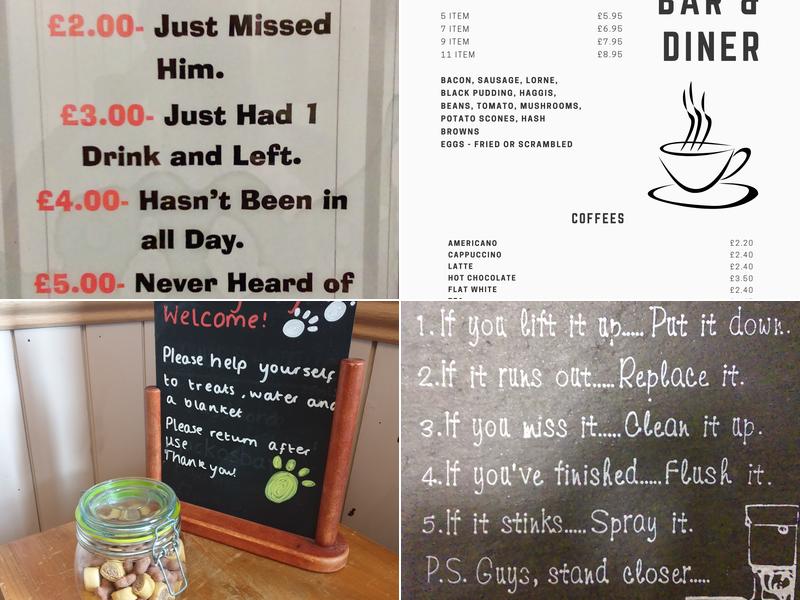 £2.00- Just Missed
Him.
£3.00- Just Had 1
Drink and Left.
£4.00- Hasn't Been in
all Day.
£5.00- Never Heard of
BAR &
DINER
5 ITEM £5.95
7 ITEM £6.95
9 ITEM £7.95
11 ITEM £8.95
BACON, SAUSAGE, LORNE,
BLACK PUDDING, HAGGIS,
BEANS, TOMATO, MUSHROOMS,
POTATO SCONES, HASH
BROWNS
EGGS - FRIED OR SCRAMBLED
COFFEES
AMERICANO £2.20
CAPPUCCINO £2.40
LATTE £2.40
HOT CHOCOLATE £3.50
FLAT WHITE £2.40
Welcome!
Please help yourself
to treats, water and
a blanket
Please return after
use
Thank you!
1. If you lift it up..... Put it down.
2. If it runs out..... Replace it.
3. If you miss it..... Clean it up.
4. If you've finished..... Flush it.
5. If it stinks..... Spray it.
P.S. Guys, stand closer.....